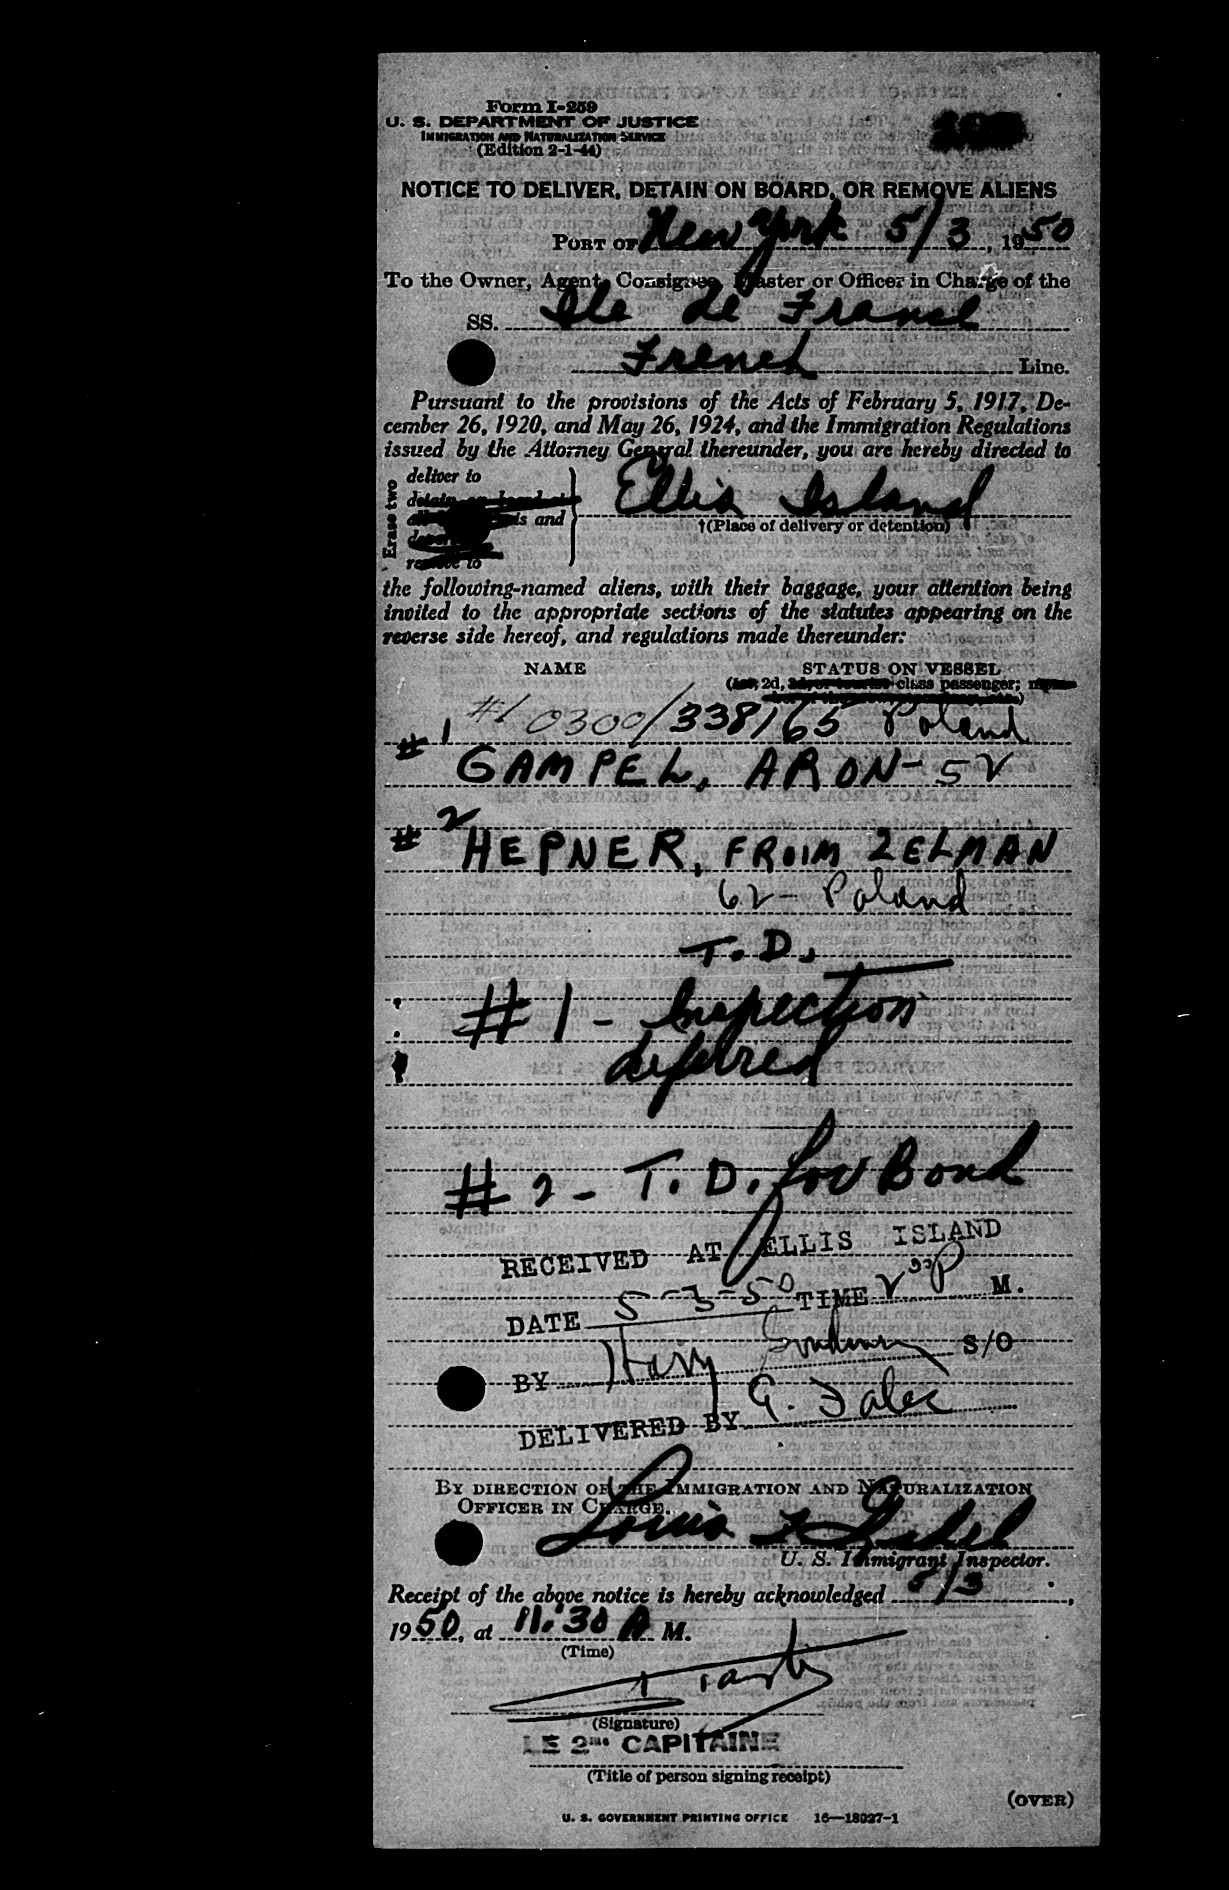 Form I-259
U. S. DEPARTMENT OF JUSTICE
IMMIGRATION AND NATURALIZATION SERVICE
(Edition 2-1-44)
NOTICE TO DELIVER, DETAIN ON BOARD, OR REMOVE ALIENS
PORT OF New York 5/3, 1950
To the Owner, Agent, Consignee, Master or Officer in Charge of the
SS. Ile de France
French Line.
Pursuant to the provisions of the Acts of February 5, 1917, De-
cember 26, 1920, and May 26, 1924, and the Immigration Regulations
issued by the Attorney General thereunder, you are hereby directed to
Erase two
deliver to
detain on board at
is and
remove to
Ellis Island
†(Place of delivery or detention)
the following-named aliens, with their baggage, your attention being
invited to the appropriate sections of the statutes appearing on the
reverse side hereof, and regulations made thereunder:
NAME STATUS ON VESSEL
(1st, 2d, class passenger;
#1 0300/338165 Poland
#1 GAMPEL, ARON - 52
#2 HEPNER, FROIM ZELMAN
62 - Poland
T. D.
#1 - Inspection
deferred
#2 - T. D. for Bond
RECEIVED AT ELLIS ISLAND
DATE 5-3-50 TIME 2 33 P M.
BY Harry S/O
DELIVERED BY G.
BY DIRECTION OF THE IMMIGRATION AND NATURALIZATION
OFFICER IN CHARGE.
Louis F
U. S. Immigrant Inspector.
Receipt of the above notice is hereby acknowledged 5/3,
1950, at 11:30 A M.
(Time)
(Signature)
LE 2me CAPITAINE
(Title of person signing receipt)
(OVER)
U. S. GOVERNMENT PRINTING OFFICE 16—18027-1